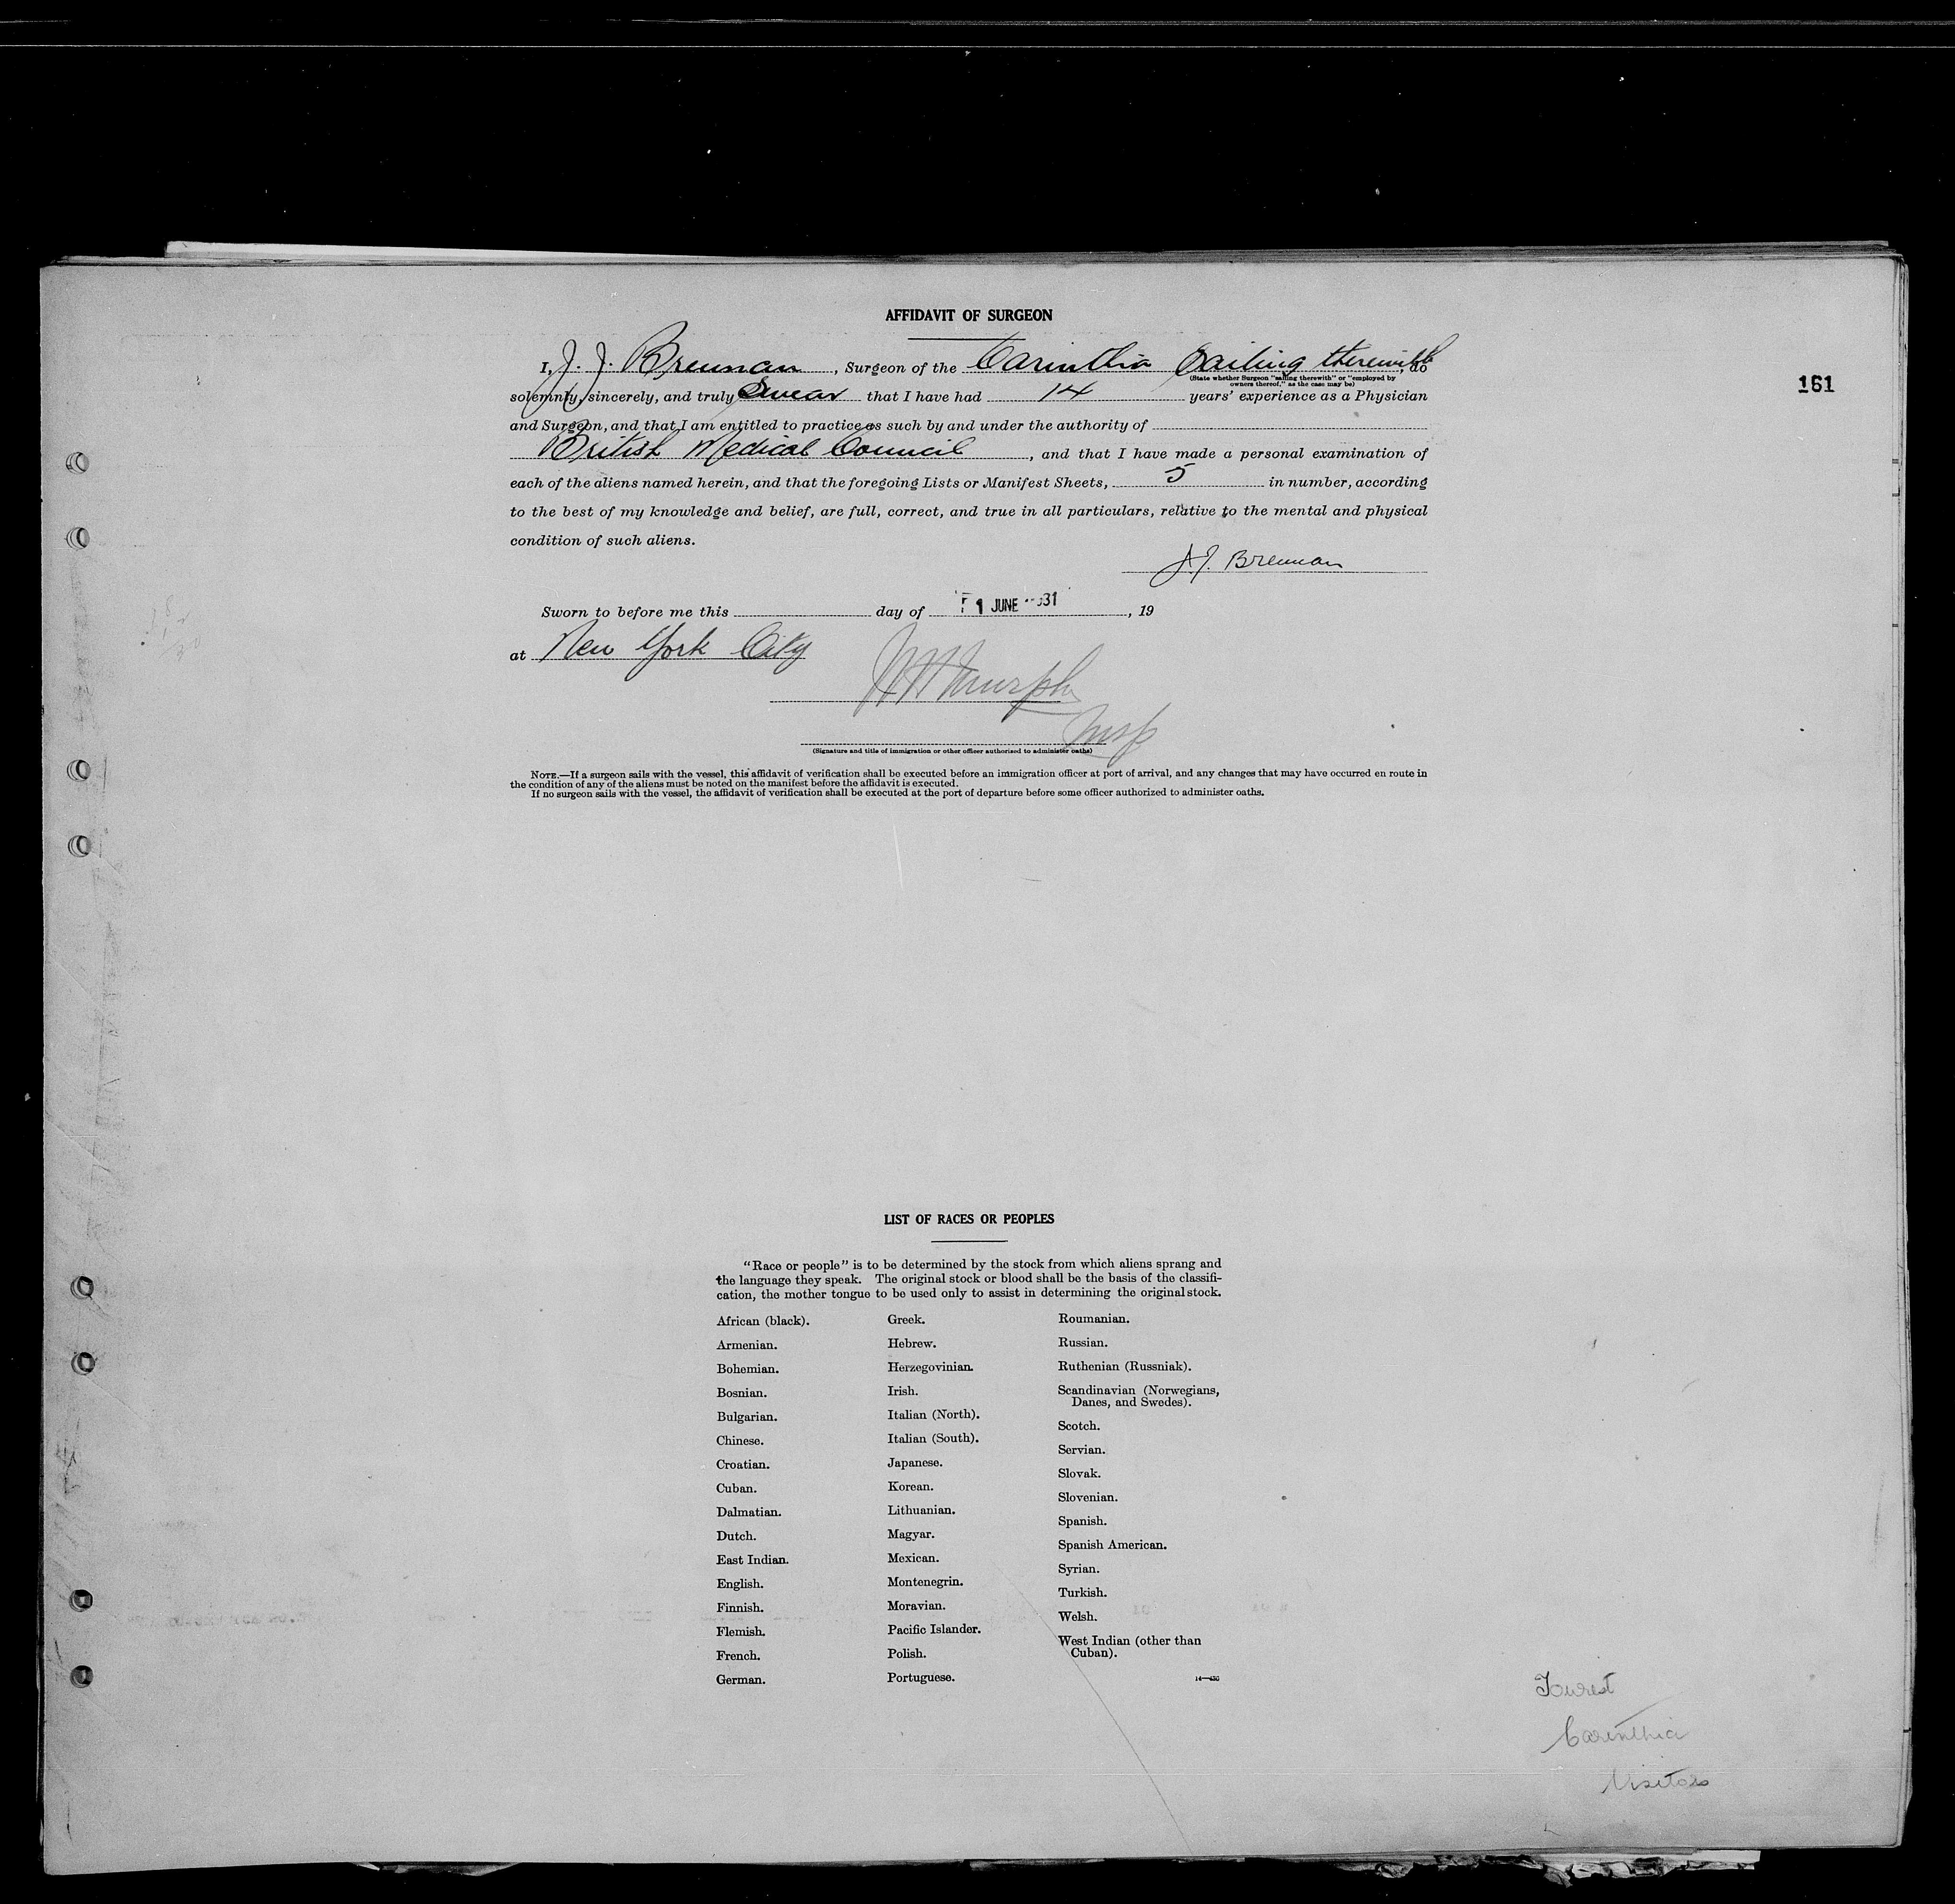 AFFIDAVIT OF SURGEON
I, J. J. Brennan, Surgeon of the Carinthia Sailing therewith, do
(State whether Surgeon "sailing therewith" or "employed by
owners thereof," as the case may be)
161
solemnly, sincerely, and truly Swear that I have had 14 years' experience as a Physician
and Surgeon, and that I am entitled to practice as such by and under the authority of
British Medical Council, and that I have made a personal examination of
each of the aliens named herein, and that the foregoing Lists or Manifest Sheets, 5 in number, according
to the best of my knowledge and belief, are full, correct, and true in all particulars, relative to the mental and physical
condition of such aliens.
J.J. Brennan
Sworn to before me this day of 1 JUNE 31, 19
at New York City
Murphy
Insp
(Signature and title of immigration or other officer authorized to administer oaths)
NOTE.—If a surgeon sails with the vessel, this affidavit of verification shall be executed before an immigration officer at port of arrival, and any changes that may have occurred en route in
the condition of any of the aliens must be noted on the manifest before the affidavit is executed.
If no surgeon sails with the vessel, the affidavit of verification shall be executed at the port of departure before some officer authorized to administer oaths.
LIST OF RACES OR PEOPLES
"Race or people" is to be determined by the stock from which aliens sprang and
the language they speak. The original stock or blood shall be the basis of the classifi-
cation, the mother tongue to be used only to assist in determining the original stock.
African (black).
Armenian.
Bohemian.
Bosnian.
Bulgarian.
Chinese.
Croatian.
Cuban.
Dalmatian.
Dutch.
East Indian.
English.
Finnish.
Flemish.
French.
German.
Greek.
Hebrew.
Herzegovinian.
Irish.
Italian (North).
Italian (South).
Japanese.
Korean.
Lithuanian.
Magyar.
Mexican.
Montenegrin.
Moravian.
Pacific Islander.
Polish.
Portuguese.
Roumanian.
Russian.
Ruthenian (Russniak).
Scandinavian (Norwegians,
Danes, and Swedes).
Scotch.
Servian.
Slovak.
Slovenian.
Spanish.
Spanish American.
Syrian.
Turkish.
Welsh.
West Indian (other than
Cuban).
14—430
Tourist
Carinthia
Visitors